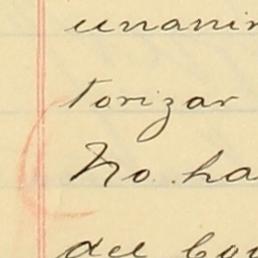 unanim
torizar
No ha
del Co